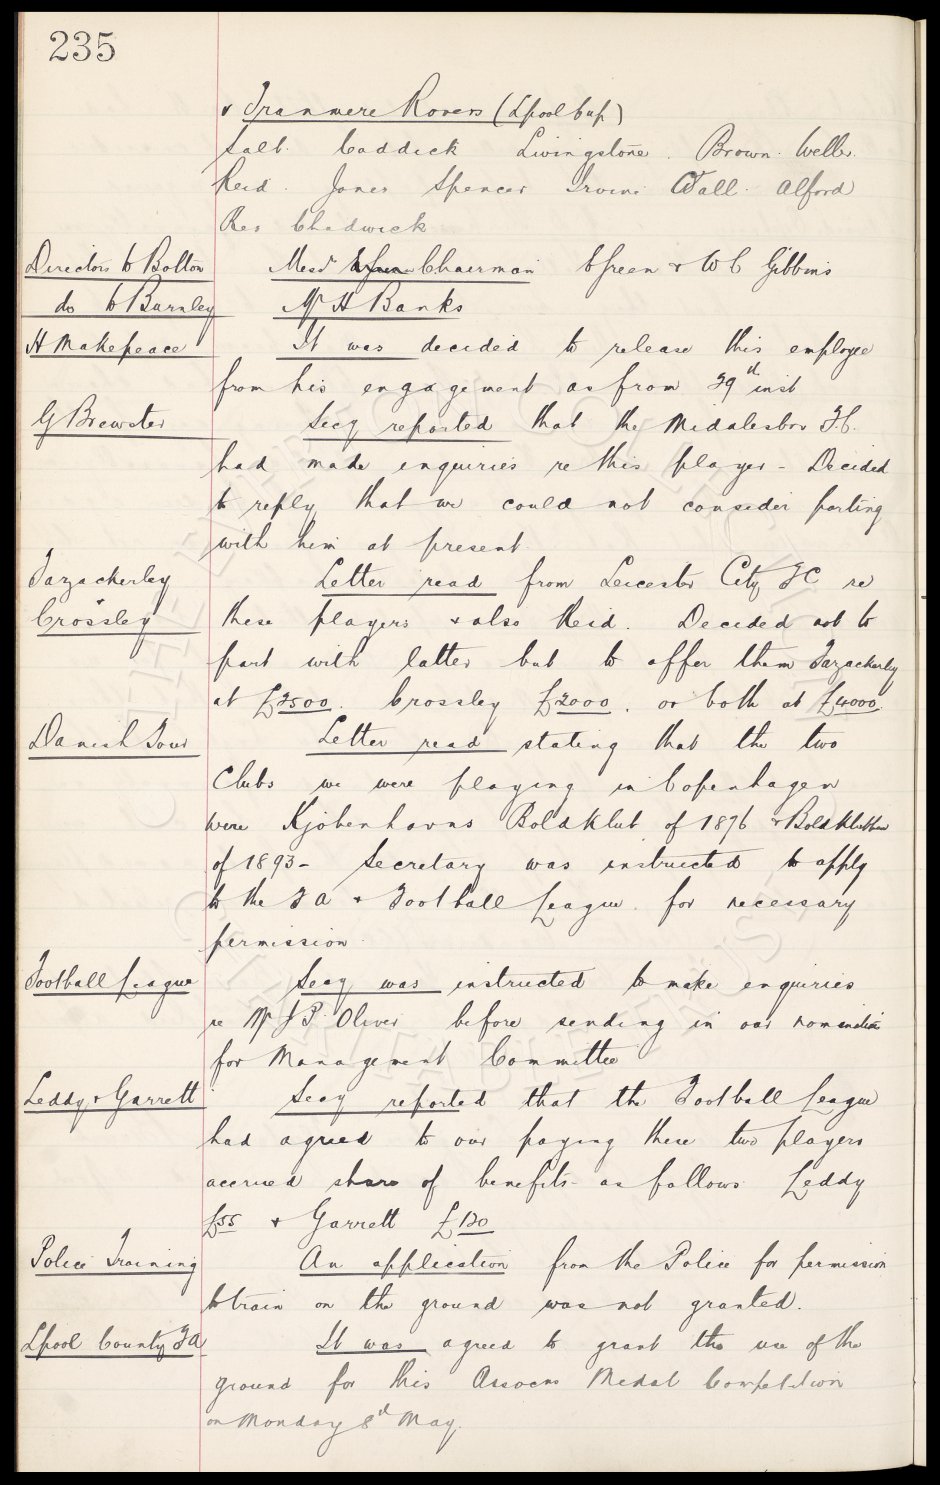 235
v Tranmere Rovers (Lpool Cup)
Salt. Caddick Livingstone. Brown. Weller.
Reid. Jones Spencer Irvine Wall. Alford
Res Chadwick
Directors to Bolton Mess Chairman C Green & W C Gibbins
do to Burnley Mr H Banks
H Makepeace It was decided to release this employee
from his engagement as from 29th inst
G Brewster Secy reported that the Middlesbro F.C.
had made enquiries re this player - Decided
to reply that we could not consider parting
with him at present.
Fazackerley Letter read from Leicester City FC re
Crossley these players & also Reid. Decided not to
part with latter but to offer them Fazackerley
at £2500. Crossley £2000. or both at £4000.
Danish Tour Letter read stating that the two
Clubs we were playing in Copenhagen
were Kjobenhavns Boldklub of 1876 & Boldklubben
of 1893 - Secretary was instructed to apply
to the F A & Football League for necessary
permission.
Football League Secy was instructed to make enquiries
re Mr J P. Oliver before sending in our nomination
for Management Committee
Leddy & Garrett Secy reported that the Football League
had agreed to our paying these two players
accrued share of benefits - as follows Leddy
£55 & Garrett £120
Police Training An application from the Police for permission
to train on the ground was not granted.
Lpool County FA It was agreed to grant the use of the
ground for this Assocns Medal Competition
on Monday 8th May.